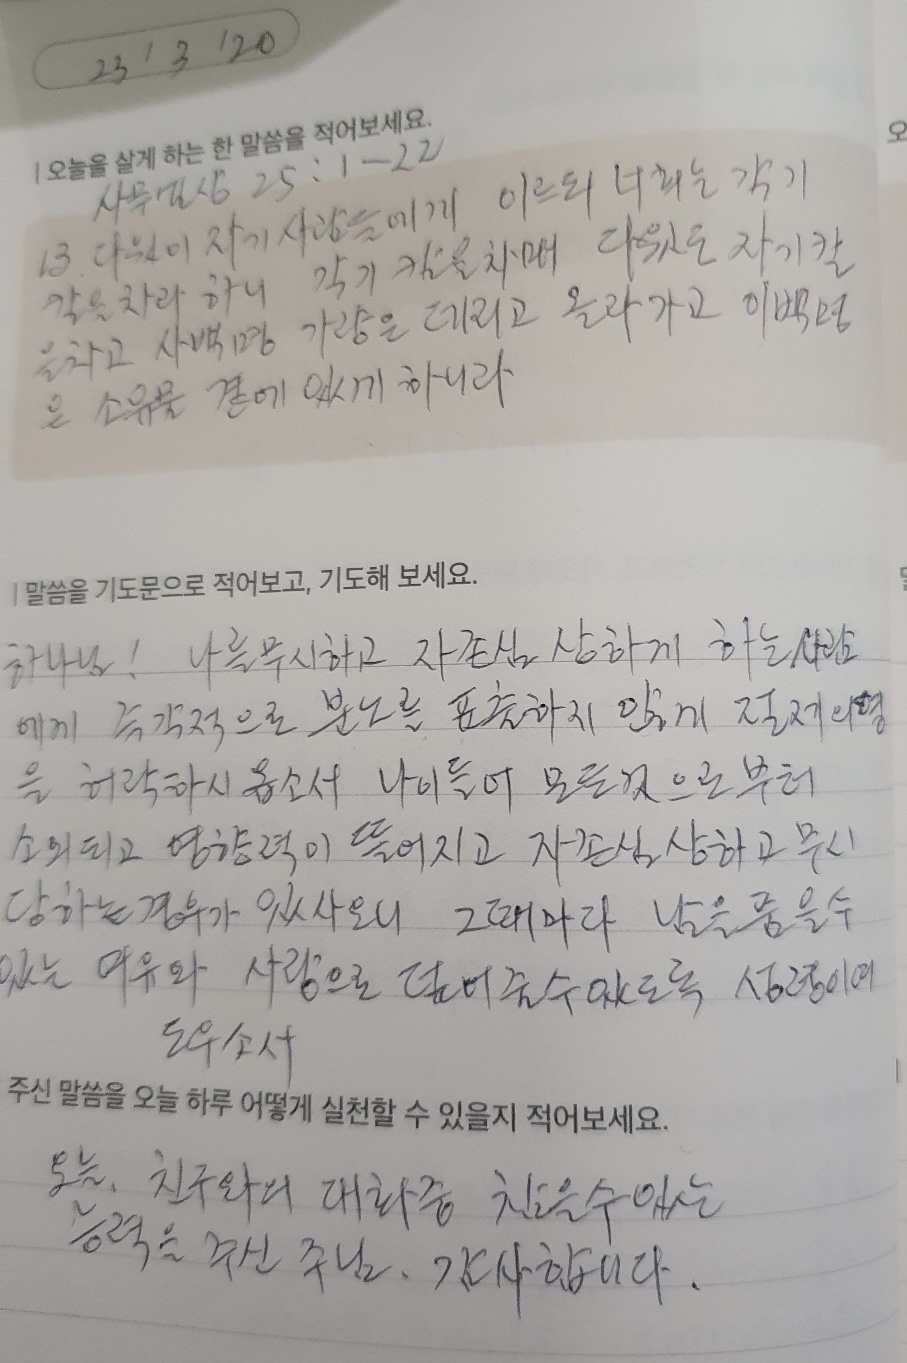 23 '3 '20
오늘을 살게 하는 한 말씀을 적어보세요.
사무엘상 25:1-22
13. 다윗이 자기 사람들에게 이르되 너희는 각기
칼을 차라 하니 각기 칼을 차매 다윗도 자기 칼
을 차고 사백명 가량은 데리고 올라가고 이백명
은 소유물 곁에 있게 하니라
말씀을 기도문으로 적어보고, 기도해 보세요.
하나님! 나를 무시하고 자존심 상하게 하는 사람
에게 즉각적으로 분노를 표출하지 않게 절제의 영
을 허락하시옵소서 나이들어 모든것으로부터
소외되고 영향력이 떨어지고 자존심 상하고 무시
당하는 경우가 있사오니 그때마다 남을 품을 수
있는 여유와 사랑으로 덮어줄 수 있도록 성령이여
도우소서
주신 말씀을 오늘 하루 어떻게 실천할 수 있을지 적어보세요.
오늘, 친구와의 대화중 참을 수 있는
능력을 주신 주님. 감사합니다.